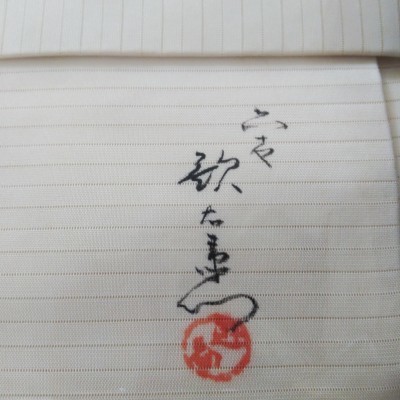 六世歌右衛門